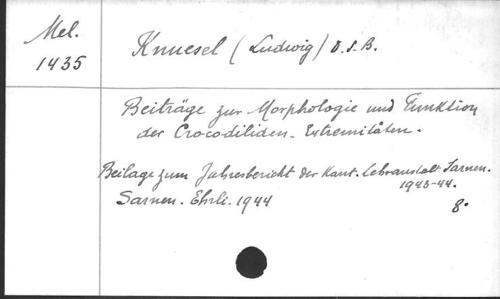 Mel.
1435
Knuesel (Ludwig) O.S.B.
Beiträge zur Morphologie und Funktion
der Crocodiliden-Extremitäten.
Beilage zum Jahresbericht der Kant. Lehranstalt Sarnen.
1943-44.
Sarnen. Ehrli. 1944
8°